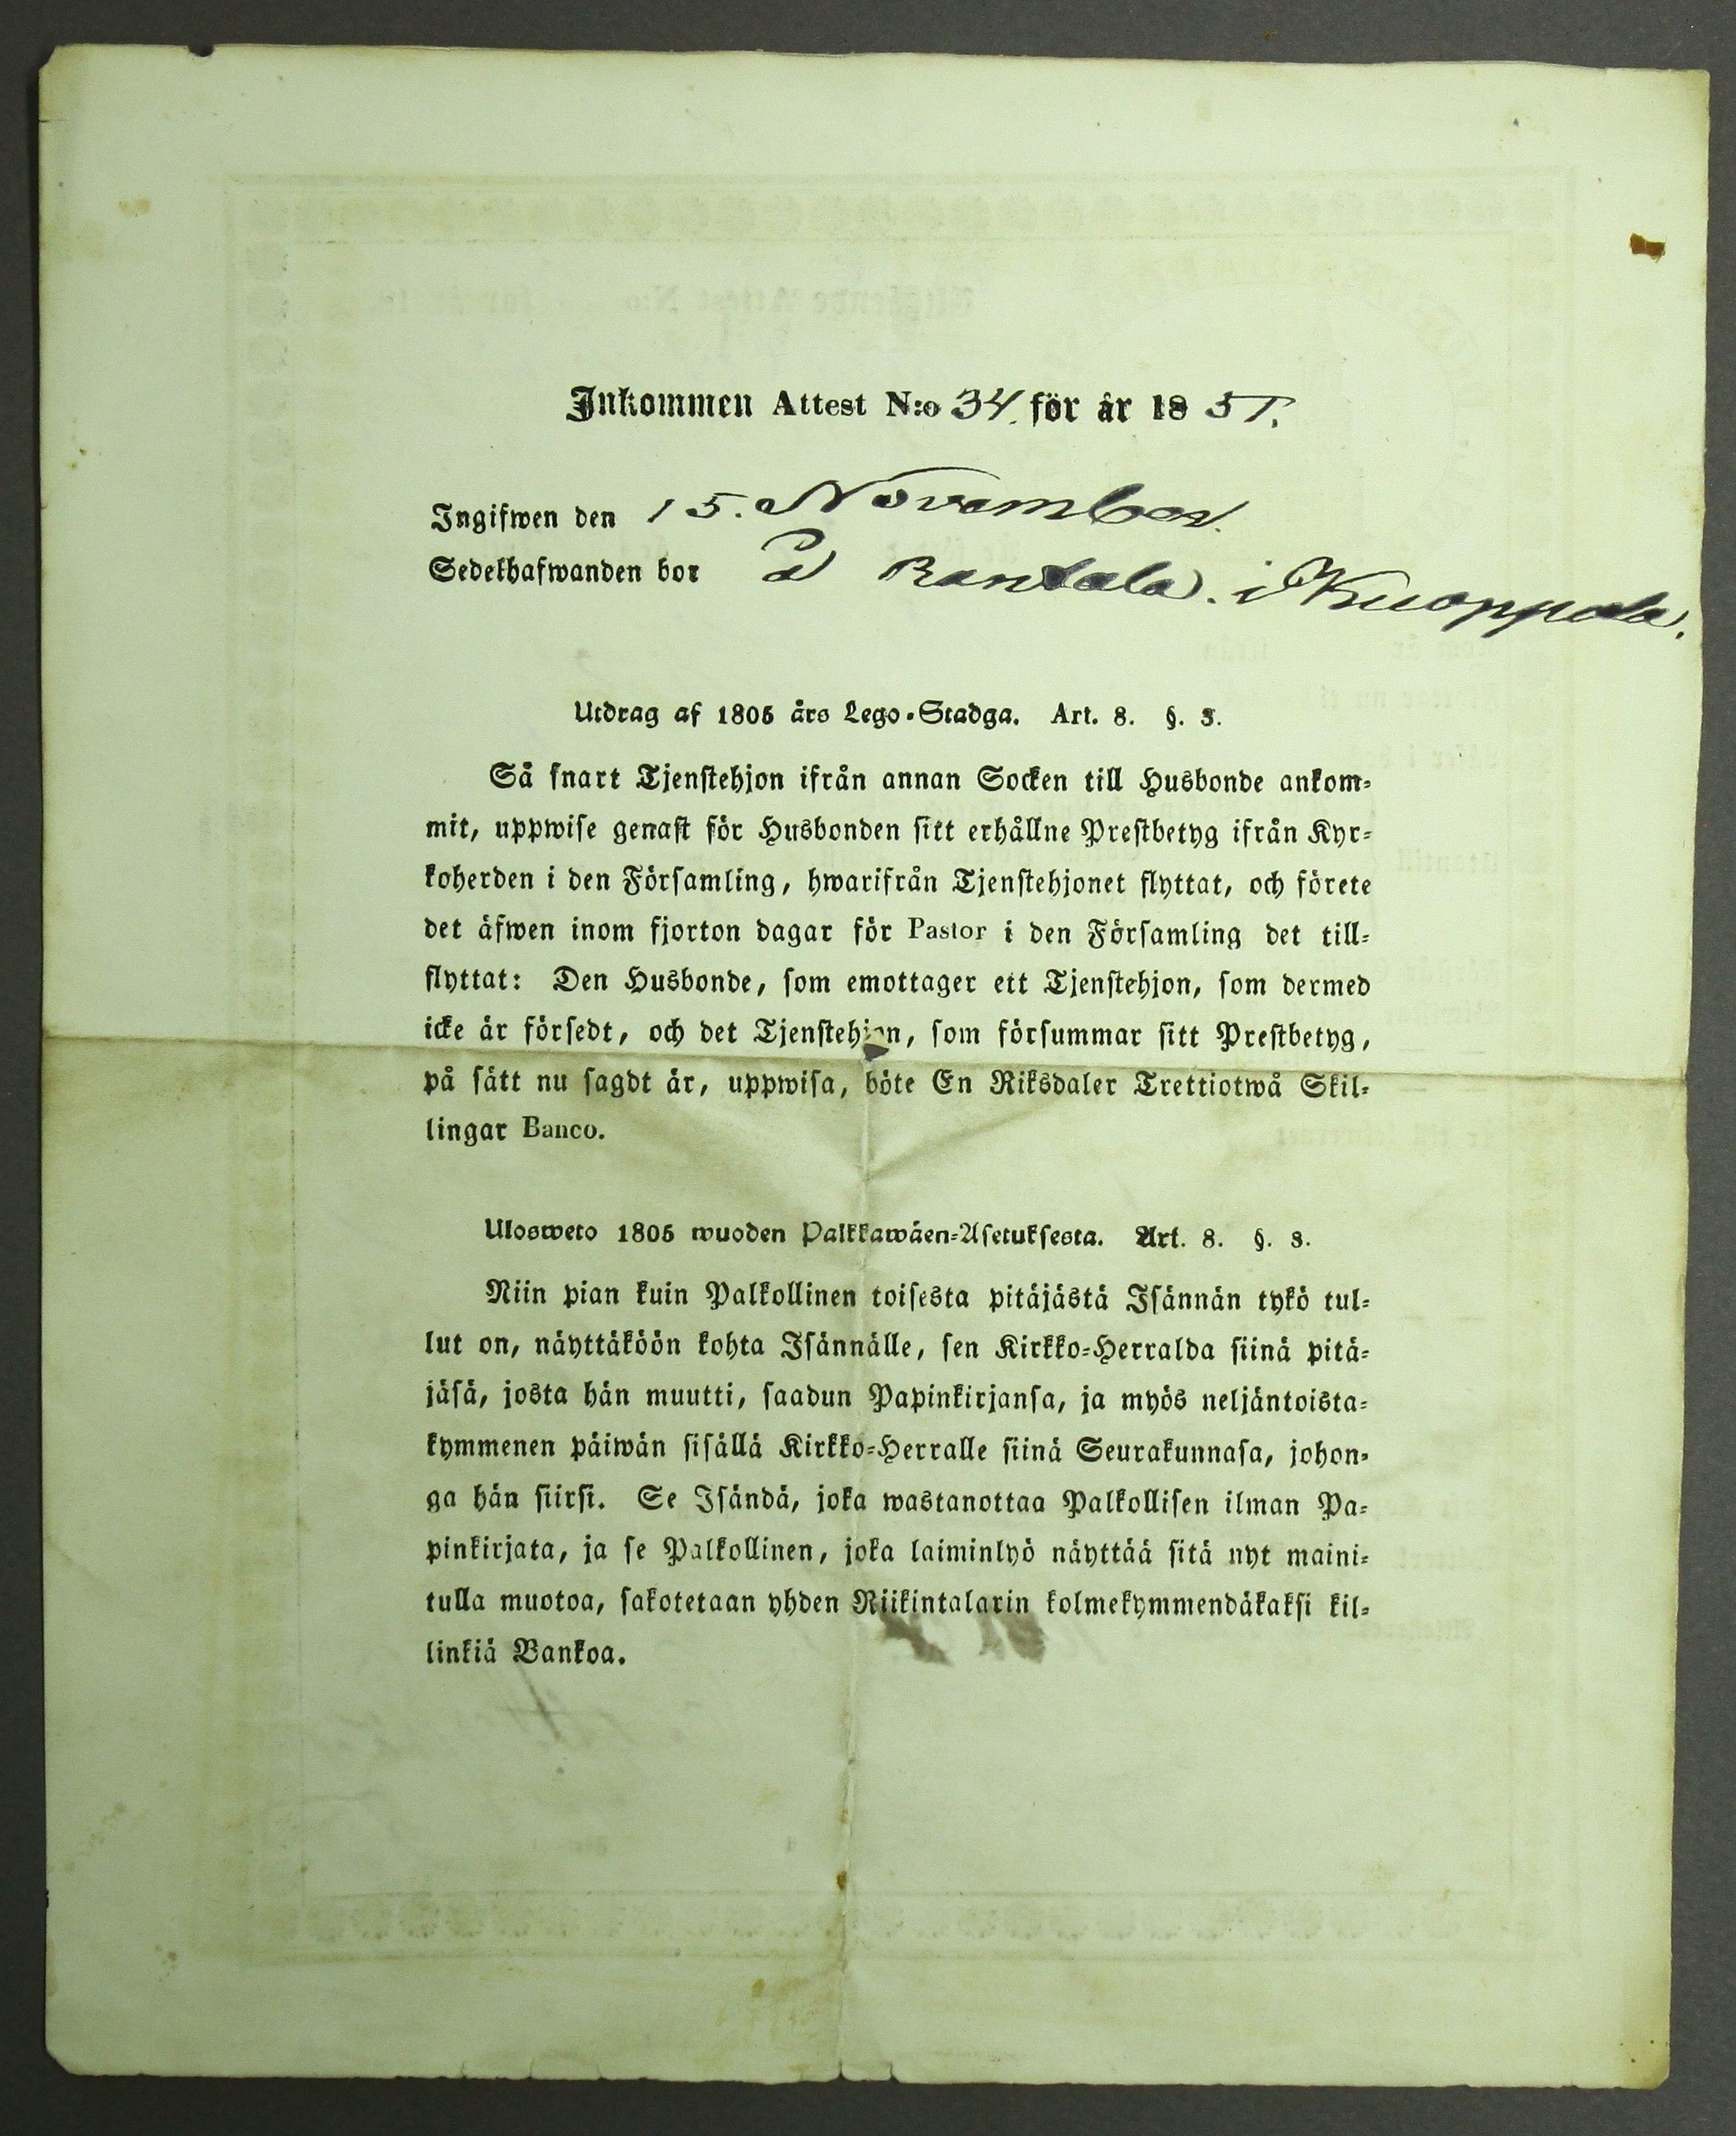 Inkommen Attest N:o 34. för år 18 51.
Ingifwen den 15. November.
Sedelhafwanden bor På Rantala. i Kuoppala.
Utdrag af 1805 års Lego-Stadga. Art. 8. §. 3.
Så snart Tjenstehjon ifrån annan Socken till Husbonde ankom-
mit, uppwise genast för Husbonden sitt erhållne Prestbetyg ifrån Kyr-
koherden i den Församling, hwarifrån Tjenstehjonet flyttat, och förete
det äfwen inom fjorton dagar för Pastor i den Församling det till-
flyttat: Den Husbonde, som emottager ett Tjenstehjon, som dermed
icke är försedt, och det Tjenstehjon, som försummar sitt Prestbetyg,
på sätt nu sagdt är, uppwisa, böte En Riksdaler Trettiotwå Skil-
lingar Banco.
Ulosweto 1805 wuoden Palkkawäen-Asetuksesta. Art. 8. §. 3.
Niin pian kuin Palkollinen toisesta pitäjästä Isännän tykö tul-
lut on, näyttäköön kohta Isännälle, sen Kirkko-Herralda siinä pitä-
jäsä, josta hän muutti, saadun Papinkirjansa, ja myös neljäntoista-
kymmenen päiwän sisällä Kirkko-Herralle siinä Seurakunnasa, johon-
ga hän siirsi. Se Isändä, joka wastanottaa Palkollisen ilman Pa-
pinkirjata, ja se Palkollinen, joka laiminlyö näyttää sitä nyt maini-
tulla muotoa, sakotetaan yhden Riikintalarin kolmekymmendäkaksi kil-
linkiä Bankoa.